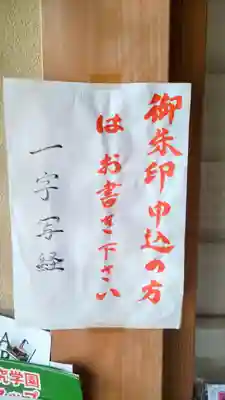 御朱印申込の方
はお書き下さい
一字写経
究学園